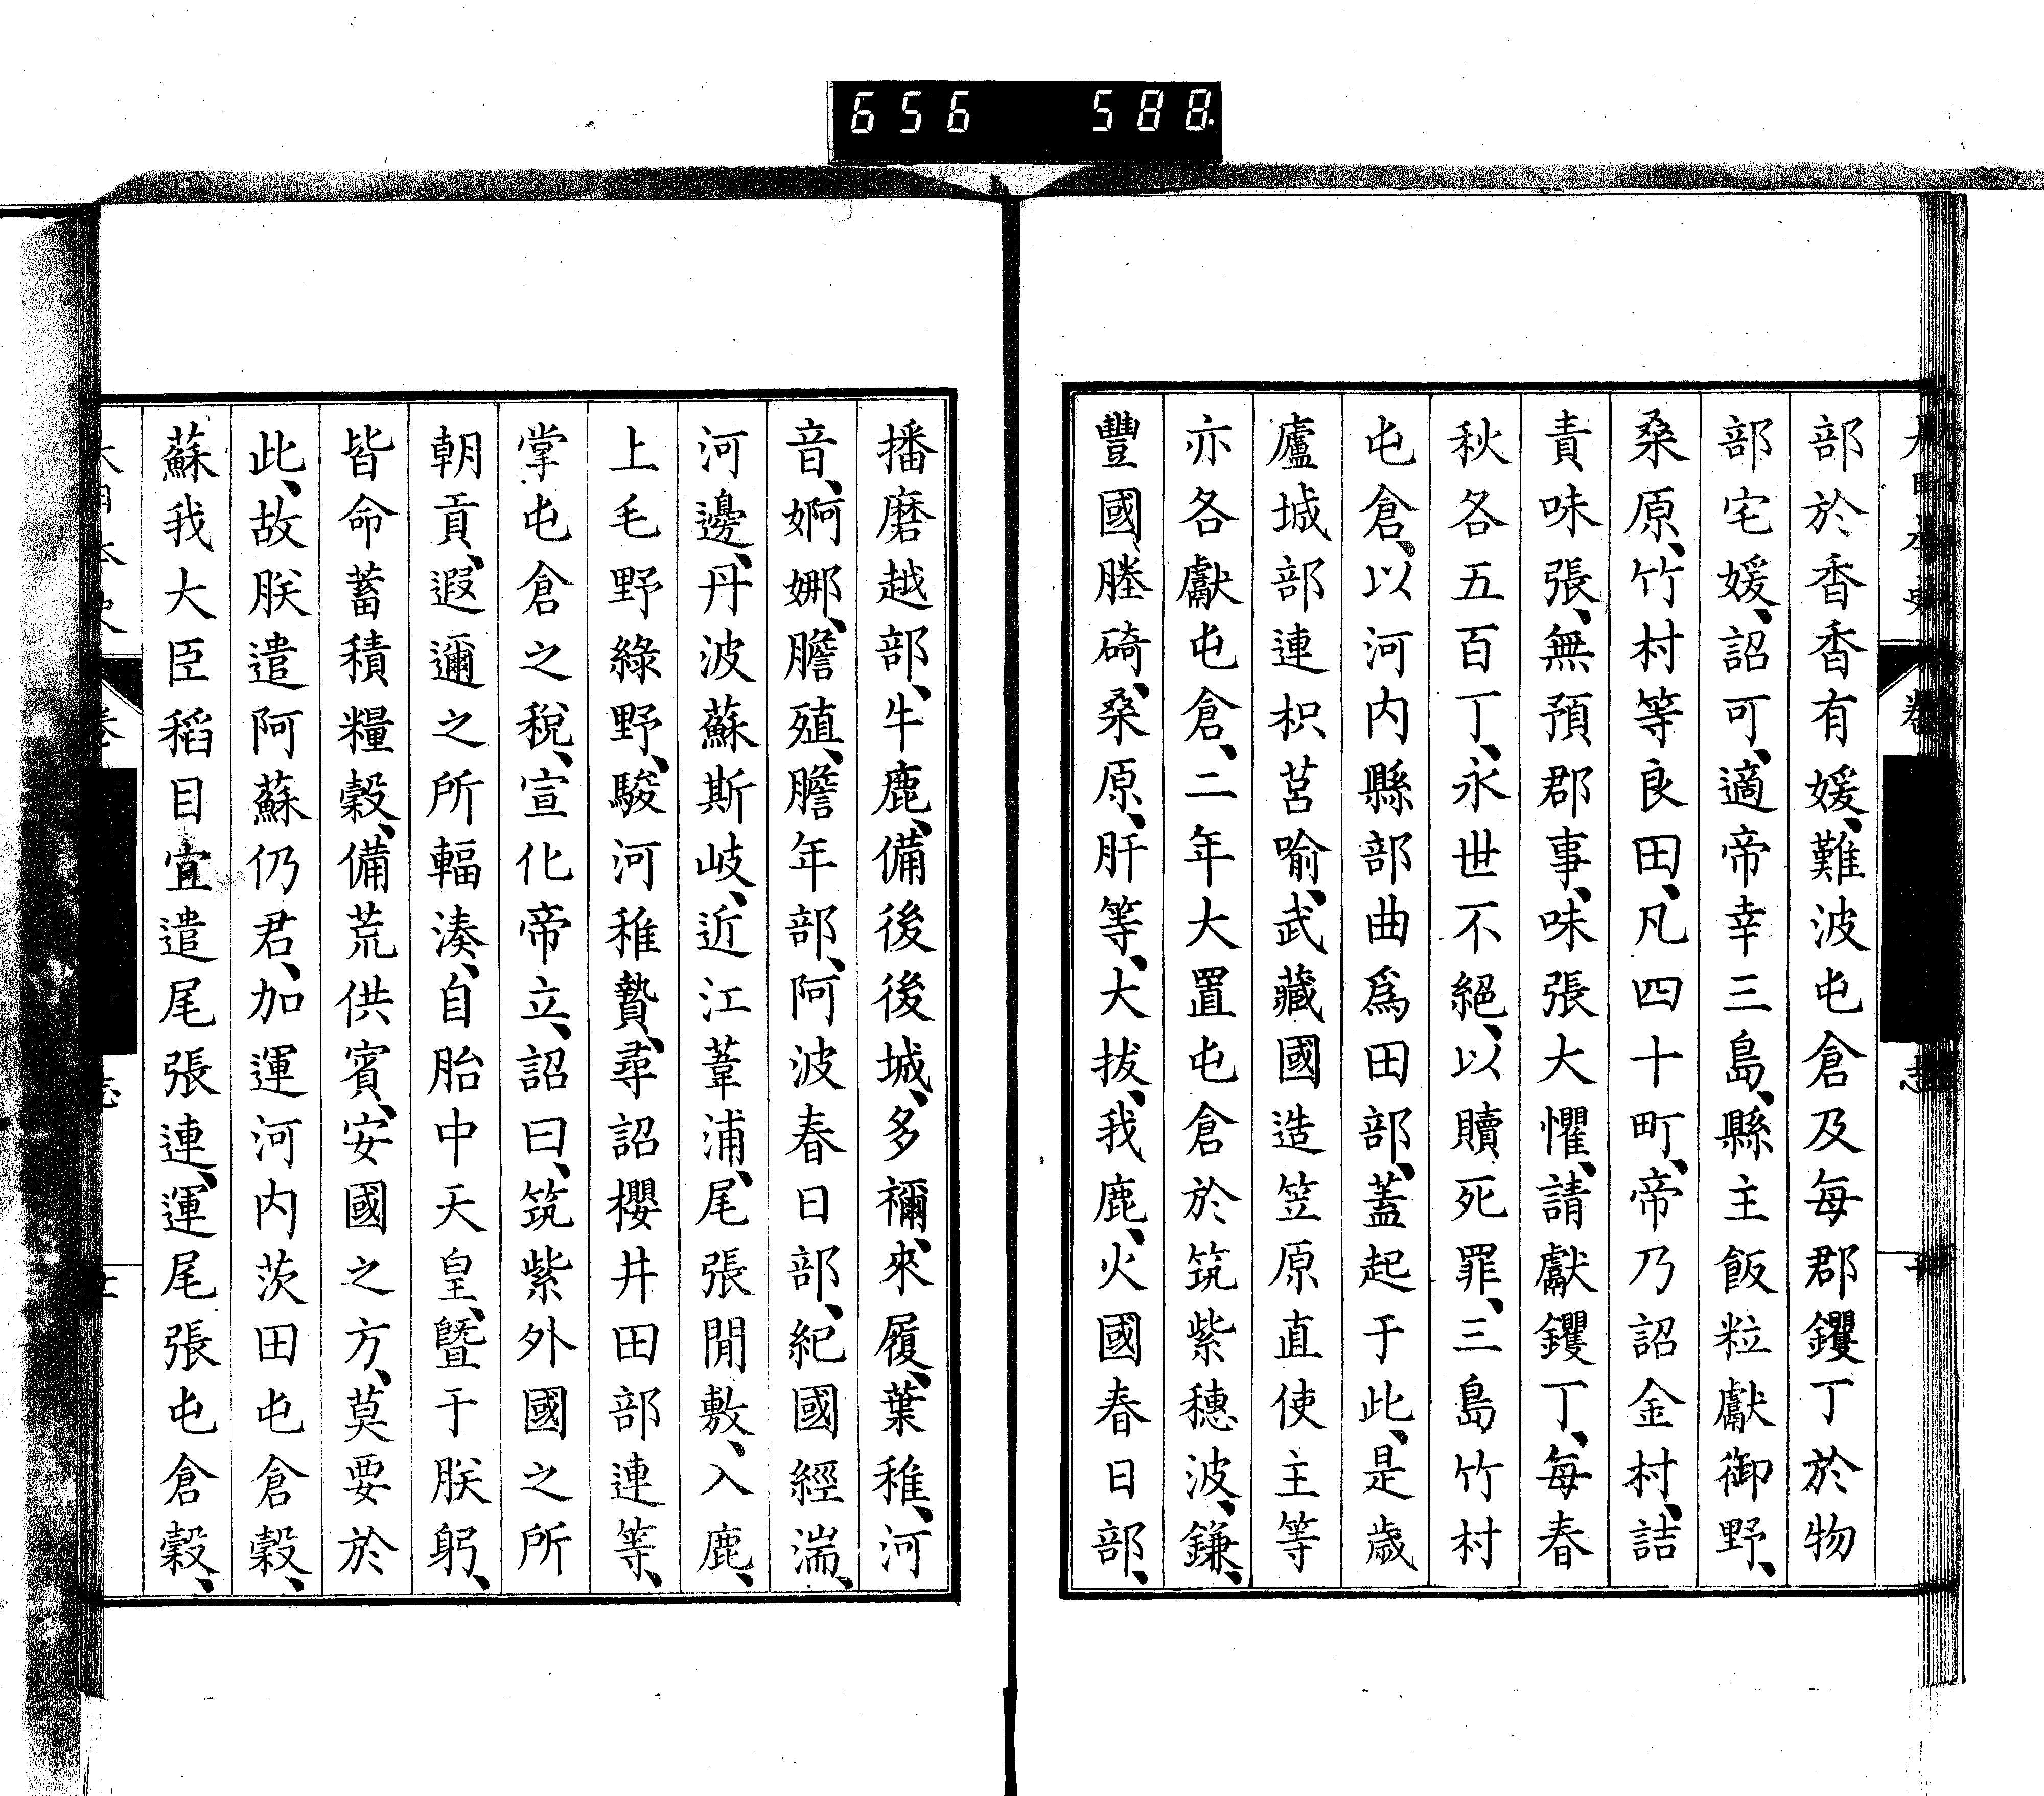 656 588.
部於香香有媛、難波屯倉及每郡钁丁於物
部宅媛、詔可、適帝幸三島、縣主飯粒獻御野、
桑原、竹村等良田、凡四十町、帝乃詔金村、詰
責味張、無預郡事、味張大懼、請獻钁丁、每春
秋各五百丁、永世不絕、以贖死罪、三島竹村
屯倉、以河内縣部曲爲田部、蓋起于此、是歲
廬城部連枳莒喻、武藏國造笠原直使主等
亦各獻屯倉、二年大置屯倉於筑紫穗波、鎌、
豐國、塍碕、桑原、肝等、大拔、我鹿、火國春日部、
播磨越部、牛鹿、備後後城、多禰、來履、葉稚、河
音、婀娜、膽殖、膽年部、阿波春日部、紀國經湍、
河邊、丹波蘇斯岐、近江葦浦、尾張閒敷、入鹿、
上毛野綠野、駿河稚贄、尋詔櫻井田部連等、
掌屯倉之稅、宣化帝立、詔曰、筑紫外國之所
朝貢、遐邇之所輻湊、自胎中天皇、曁于朕躬、
皆命蓄積糧穀、備荒供賓、安國之方、莫要於
此、故朕遣阿蘇仍君、加運河内茨田屯倉穀、
蘇我大臣稻目宜遣尾張連、運尾張屯倉穀、